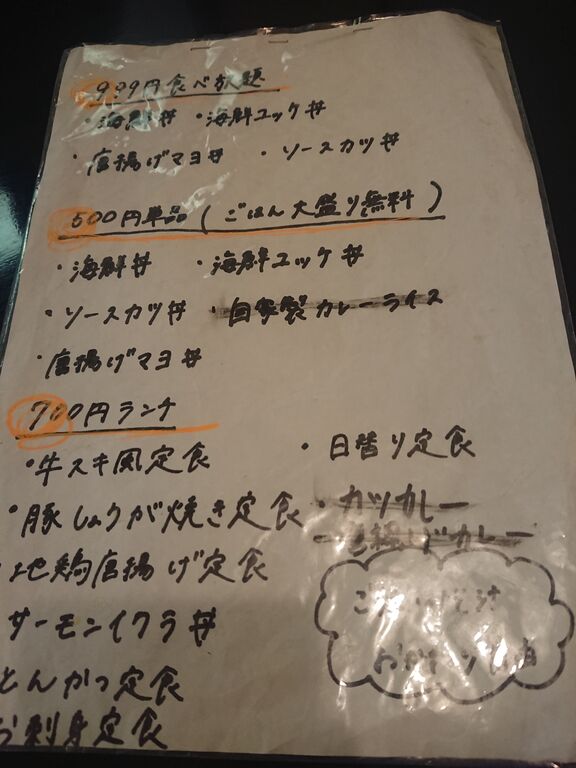 999円食べ放題
・海鮮丼 ・海鮮ユッケ丼
・唐揚げマヨ丼 ・ソースカツ丼
500円単品(ごはん大盛り無料)
・海鮮丼 ・海鮮ユッケ丼
・ソースカツ丼 ・自家製カレーライス
・唐揚げマヨ丼
700円ランチ
・牛スキ風定食 ・日替り定食
・豚しょうが焼き定食 ・カツカレー
地鶏唐揚げ定食 カレー
サーモンイクラ丼
とんかつ定食
お刺身定食